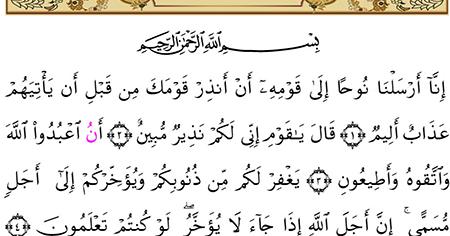 بِسْمِ ٱللَّهِ ٱلرَّحْمَٰنِ ٱلرَّحِيمِ
إِنَّآ أَرْسَلْنَا نُوحًا إِلَىٰ قَوْمِهِۦٓ أَنْ أَنذِرْ قَوْمَكَ مِن قَبْلِ أَن يَأْتِيَهُمْ
عَذَابٌ أَلِيمٌ ﴿١﴾ قَالَ يَٰقَوْمِ إِنِّى لَكُمْ نَذِيرٌ مُّبِينٌ ﴿٢﴾ أَنُ ٱعْبُدُوا۟ ٱللَّهَ
وَٱتَّقُوهُ وَأَطِيعُونِ ﴿٣﴾ يَغْفِرْ لَكُم مِّن ذُنُوبِكُمْ وَيُؤَخِّرْكُمْ إِلَىٰٓ أَجَلٍ
مُّسَمًّى ۚ إِنَّ أَجَلَ ٱللَّهِ إِذَا جَآءَ لَا يُؤَخَّرُ ۖ لَوْ كُنتُمْ تَعْلَمُونَ ﴿٤﴾